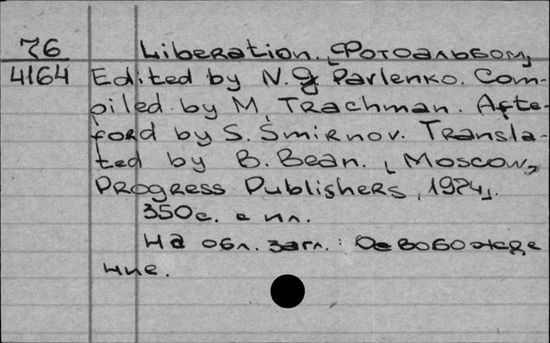 76 Liberation. [Фотоальбом]
4164 Edited by N.G Pavlenko. Com-
piled by M. Trachman. Afte-
rford by S. Smirnov. Transla-
ted by B. Bean. [Moscow,
Progress Publishers, 1974].
350с. с ил.
На обл. загл.: Освобожде
ние.